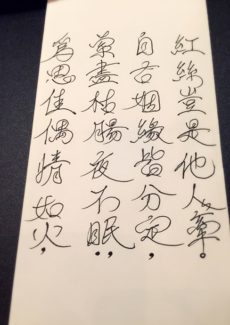 為思佳偶情如火，
索盡枯腸夜不眠；
自古姻緣皆分定，
紅絲豈是他人牽。